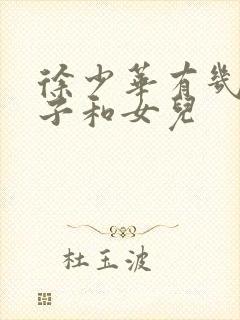 徐少華有幾
子和女兒
杜玉波